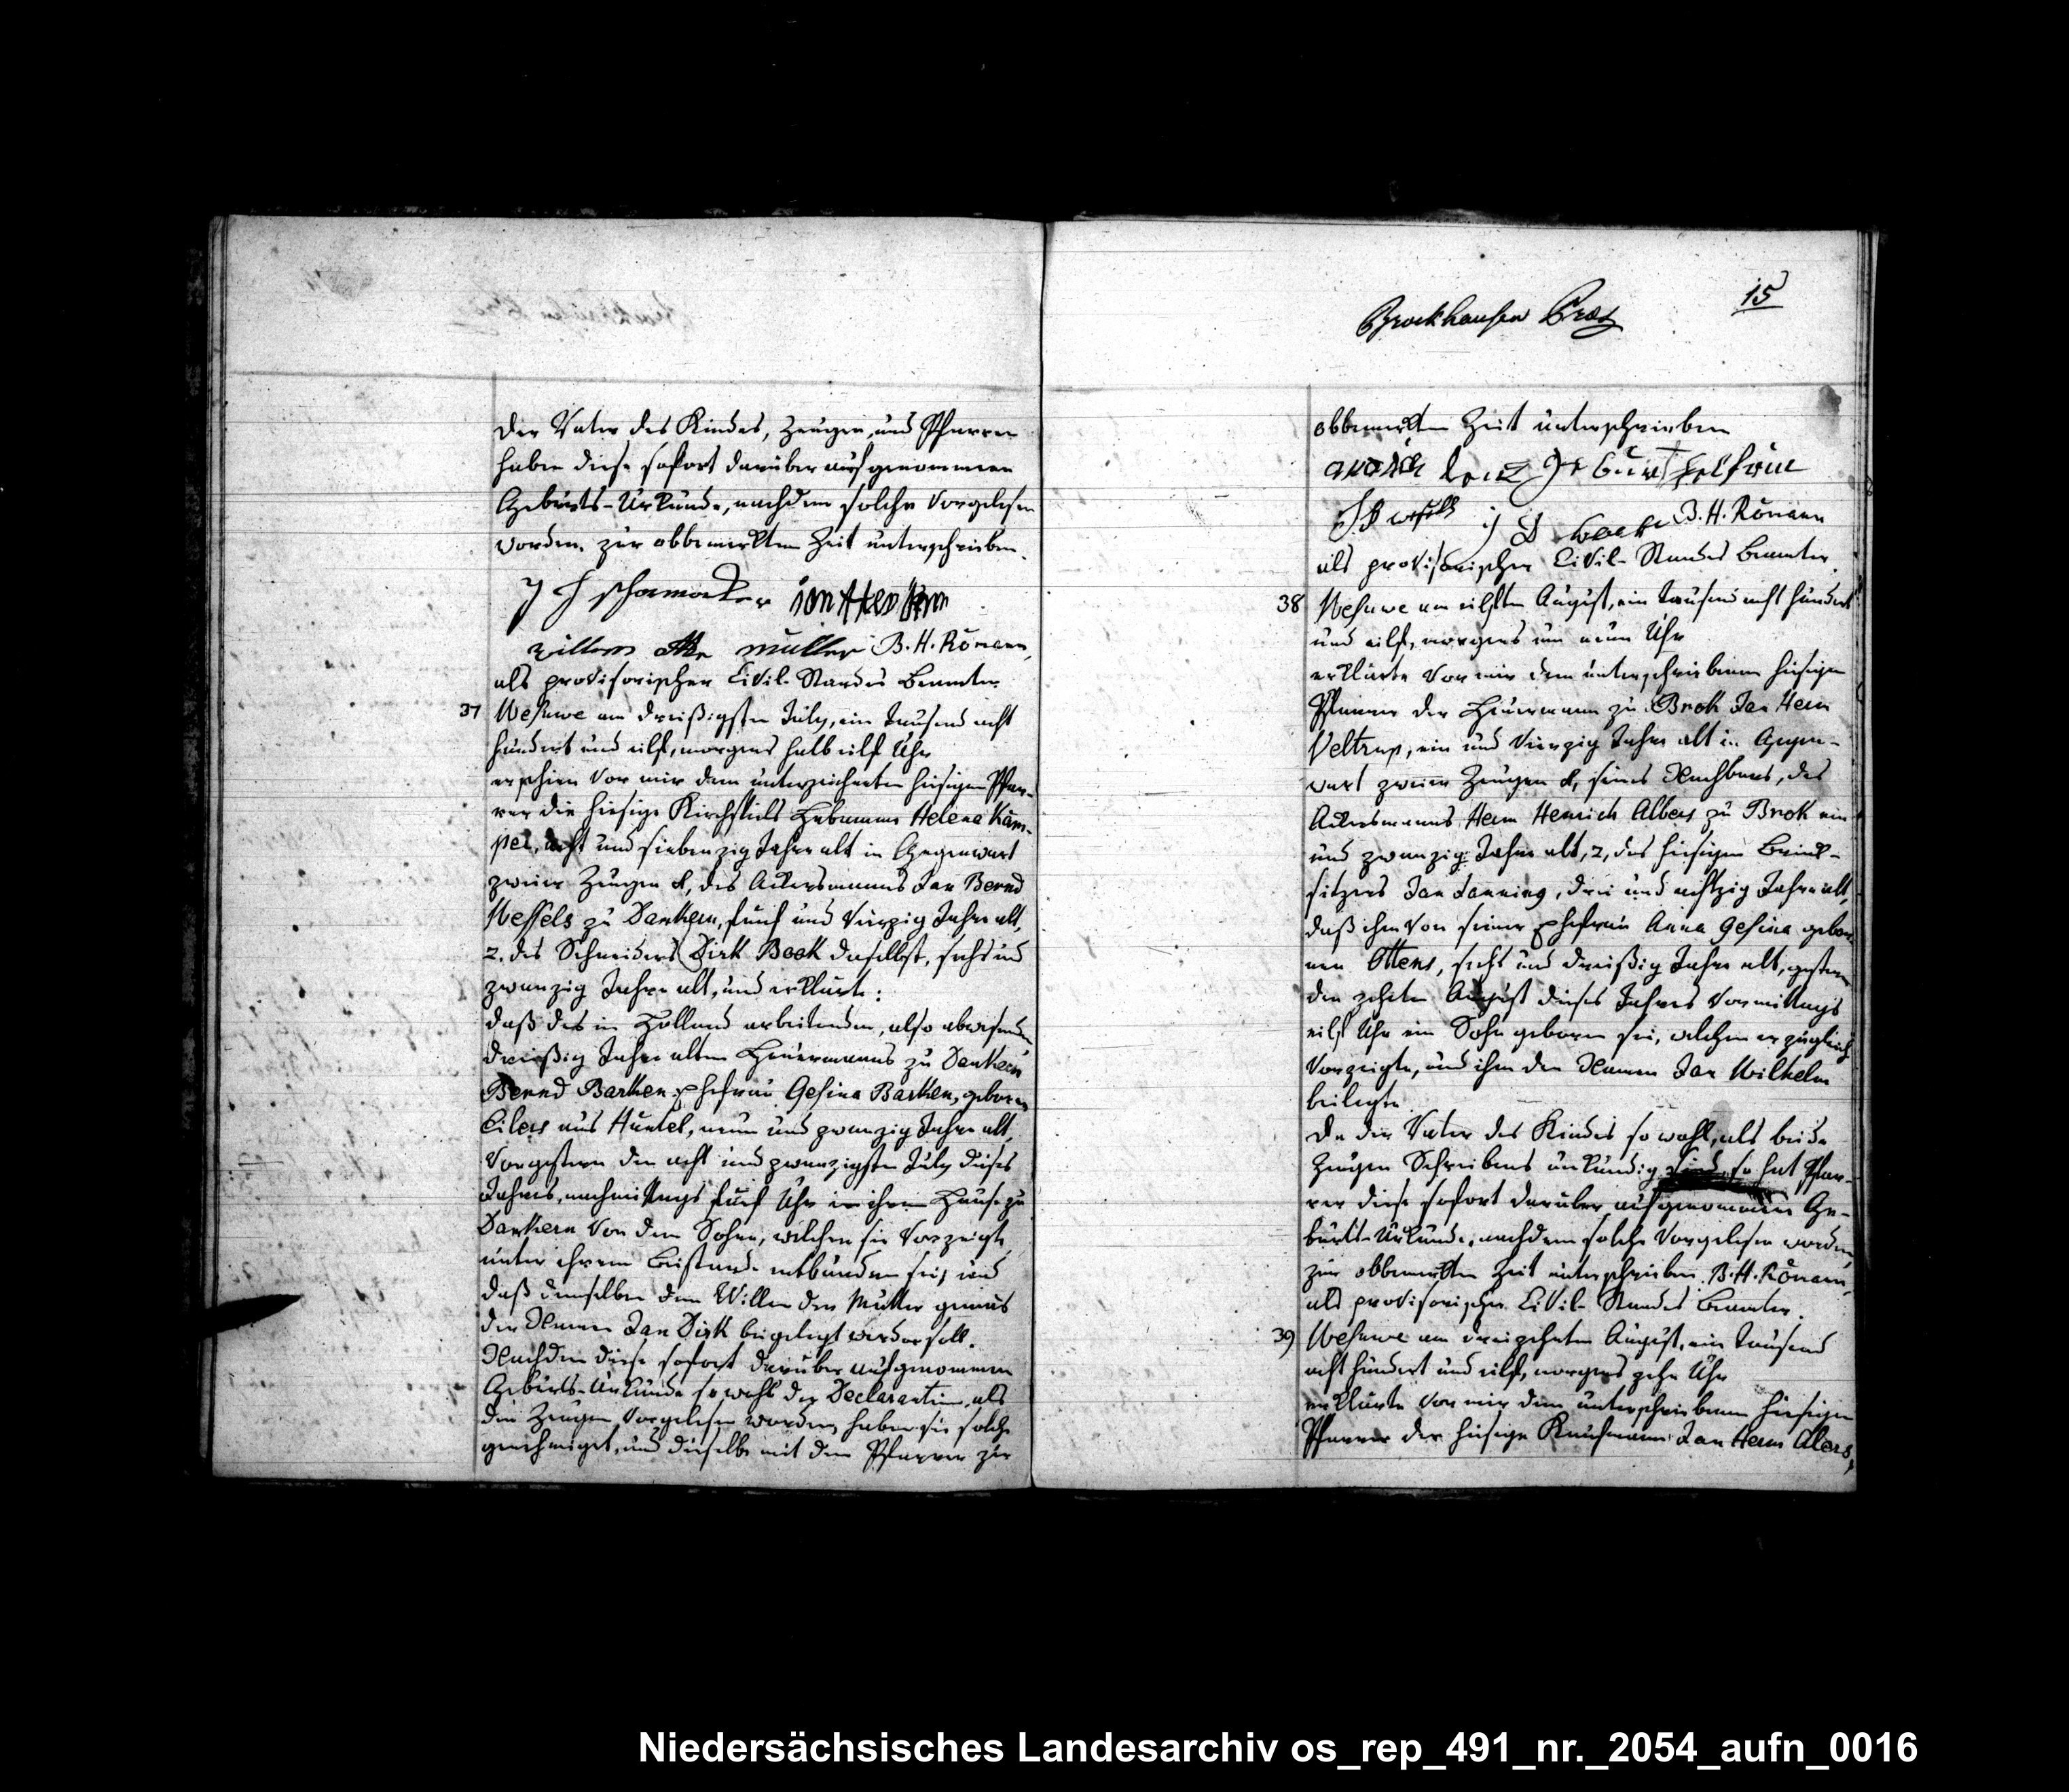 15
Brockhausen Präs
der Vater des Kindes, Zeugen, und Pfarrer
haben diese sofort darüber aufgenommene
Geburts-Urkunde, nachdem solche vorgelesen
worden, zur obbemerkten Zeit unterschrieben.
J H schomaker
willem müller B. H. Römann,
als provisorischer Civil-Standes Beamter
37 Wesuwe am dreißigsten July, ein Tausend acht
hundert und eilf, morgens halb eilf Uhr
erschien vor mir dem unterzeichneten hiesigen Pfar-
rer die hiesige Kirchspiels Hebamme Helena Käm-
per, acht und siebenzig Jahre alt in Gegenwart
zweier Zeugen 1, des Ackersmanns Jan Bernd
Wessels zu Dankern, fünf und vierzig Jahre alt,
2, des Schneiders Dirk Book daselbst, sechs und
zwanzig Jahre alt, und erklärte:
daß des in Holland arbeitenden, also abwesenden
dreißig Jahre alten Heuermanns zu Dankern
Bernd Barken Ehefrau Gesina Barken, geboren
Eilers aus Huntel, neun und zwanzig Jahre alt,
vorgestern den acht und zwanzigsten July dieses
Jahres, nachmittags fünf Uhr in ihrem Hause zu
Dankern von dem Sohne, welchen sie vorzeigte
unter ihrem Beistande entbunden sei, und
daß demselben dem Willen der Mutter gemäs
der Namen Jan Dirk beigelegt werden soll.
Nachdem diese sofort darüber aufgenommene
Geburts-Urkunde sowohl der Declarantin, als
den Zeugen vorgelesen worden, haben sie solche
genehmiget, und dieselbe mit dem Pfarrer zur
obbemerkten Zeit unterschrieben
B. H. Römann
als provisorischer Civil-Standes Beamter.
38 Wesuwe am eilften August, ein Tausend acht hundert
und eilf, morgens um neun Uhr
erklärte vor mir dem unterschriebenen hiesigen
Pfarrer der Heuermann zu Brok Jan Herm
Veltrup, ein und vierzig Jahre alt in Gegen-
wart zweier Zeugen 1, seines Nachbars, des
Ackersmanns Herm Henrich Albers zu Brok ein
und zwanzig Jahre alt, 2, des hiesigen Brink-
sitzers Jan Lanning, drei und achtzig Jahre alt,
daß ihm von seiner Ehefrau Anna Gesina gebor-
nen Ottens, sechs und dreißig Jahre alt, gestern
den zehnten August dieses Jahres vormittags
eilf Uhr ein Sohn geboren sei, welchen er zugleich
vorzeigte, und ihm den Namen Jan Wilhelm
beilegte.
Da der Vater des Kindes sowohl, als beide
Zeugen Schreibens unkundig sind, so hat Pfar-
rer diese sofort darüber aufgenommene Ge-
burts-Urkunde, nachdem solche vorgelesen worden,
zur obbemerkten Zeit unterschrieben. B. H. Römann,
als provisorischer Civil-Standes Beamter.
39 Wesuwe am dreizehnten August, ein Tausend
acht hundert und eilf, morgens zehn Uhr
erklärte vor mir dem unterschriebenen hiesigen
Pfarrer der hiesige Kaufmann Jan Herm Alers,
Niedersächsisches Landesarchiv os_rep_491_nr._2054_aufn_0016